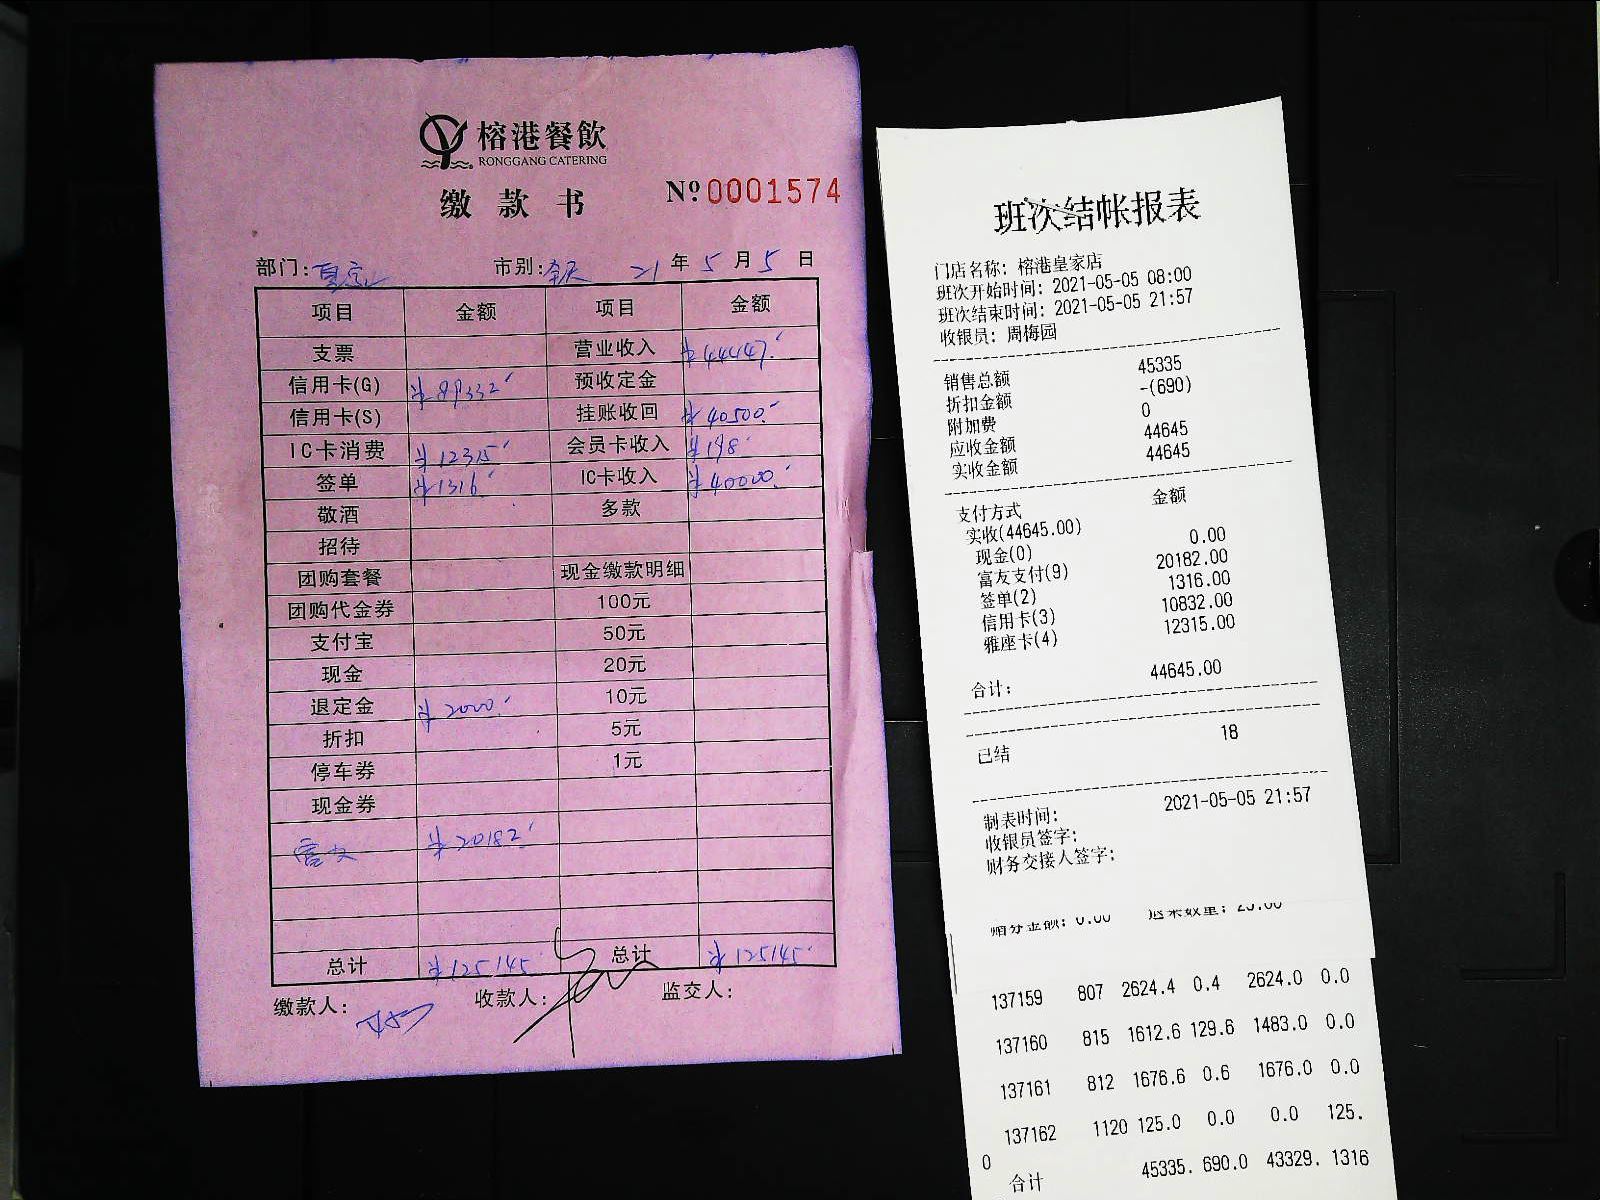 榕港餐飲
RONGGANG CATERING
缴款书 №0001574
部门: 市别:全天 21年5月5日
项目 金额 项目 金额
支票 营业收入 ¥44447.
信用卡(G) ¥89332 预收定金
信用卡(S) 挂账收回 ¥40500.
IC卡消费 ¥12315 会员卡收入 ¥198
签单 ¥1316 IC卡收入 ¥40000.
敬酒 多款
招待
团购套餐 现金缴款明细
团购代金券 100元
支付宝 50元
现金 20元
退定金 ¥2000. 10元
折扣 5元
停车券 1元
现金券
富友 ¥20182
总计 ¥125145 总计 ¥125145
缴款人: 收款人: 监交人:
班次结帐报表
门店名称: 榕港皇家店
班次开始时间: 2021-05-05 08:00
班次结束时间: 2021-05-05 21:57
收银员: 周梅园
销售总额 45335
折扣金额 -(690)
附加费 0
应收金额 44645
实收金额 44645
支付方式 金额
实收(44645.00)
现金(0) 0.00
富友支付(9) 20182.00
签单(2) 1316.00
信用卡(3) 10832.00
雅座卡(4) 12315.00
合计: 44645.00
已结 18
制表时间: 2021-05-05 21:57
收银员签字:
财务交接人签字:
赠券金额: 0.00 退菜数量: 25.00
137159 807 2624.4 0.4 2624.0 0.0
137160 815 1612.6 129.6 1483.0 0.0
137161 812 1676.6 0.6 1676.0 0.0
137162 1120 125.0 0.0 0.0 125.
0
合计 45335. 690.0 43329. 1316